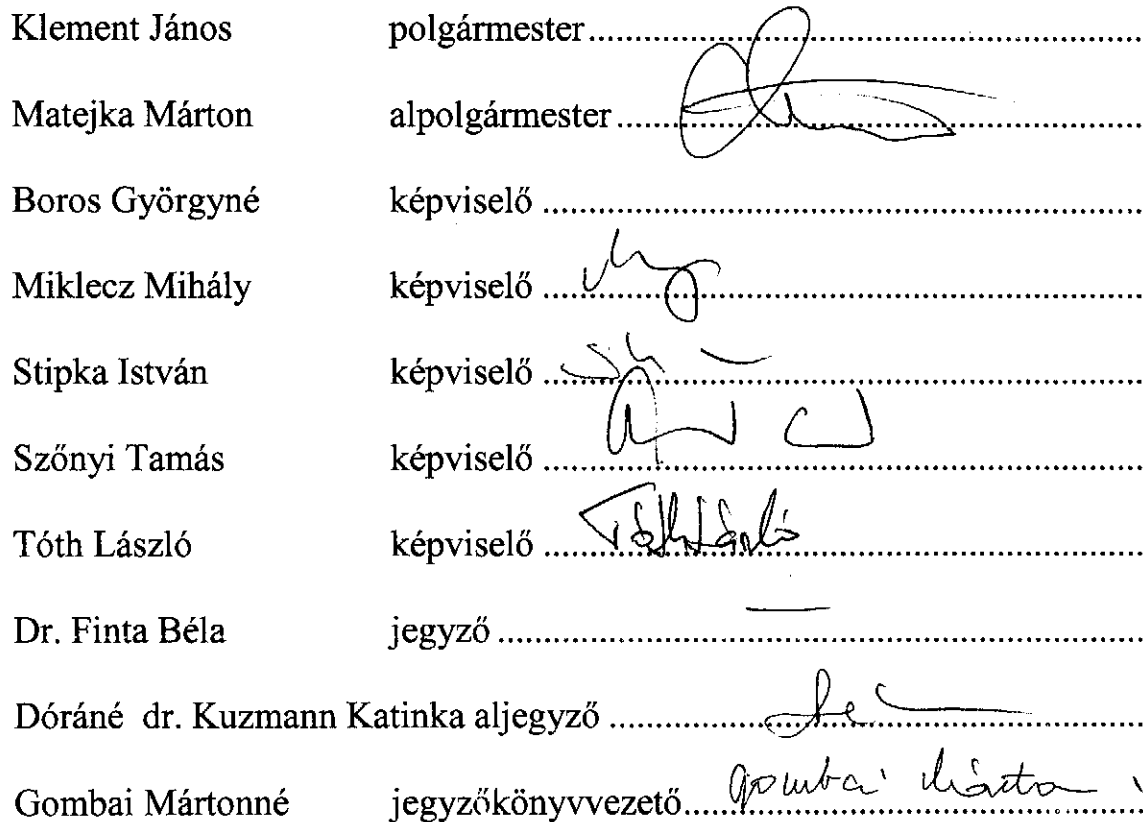 Klement János polgármester..........
Matejka Márton alpolgármester..........
Boros Györgyné képviselő..........
Miklecz Mihály képviselő..........
Stipka István képviselő..........
Szőnyi Tamás képviselő..........
Tóth László képviselő.......... Tóth László
Dr. Finta Béla jegyző..........
Dóráné dr. Kuzmann Katinka aljegyző..........
Gombai Mártonné jegyzőkönyvvezető.......... Gombai